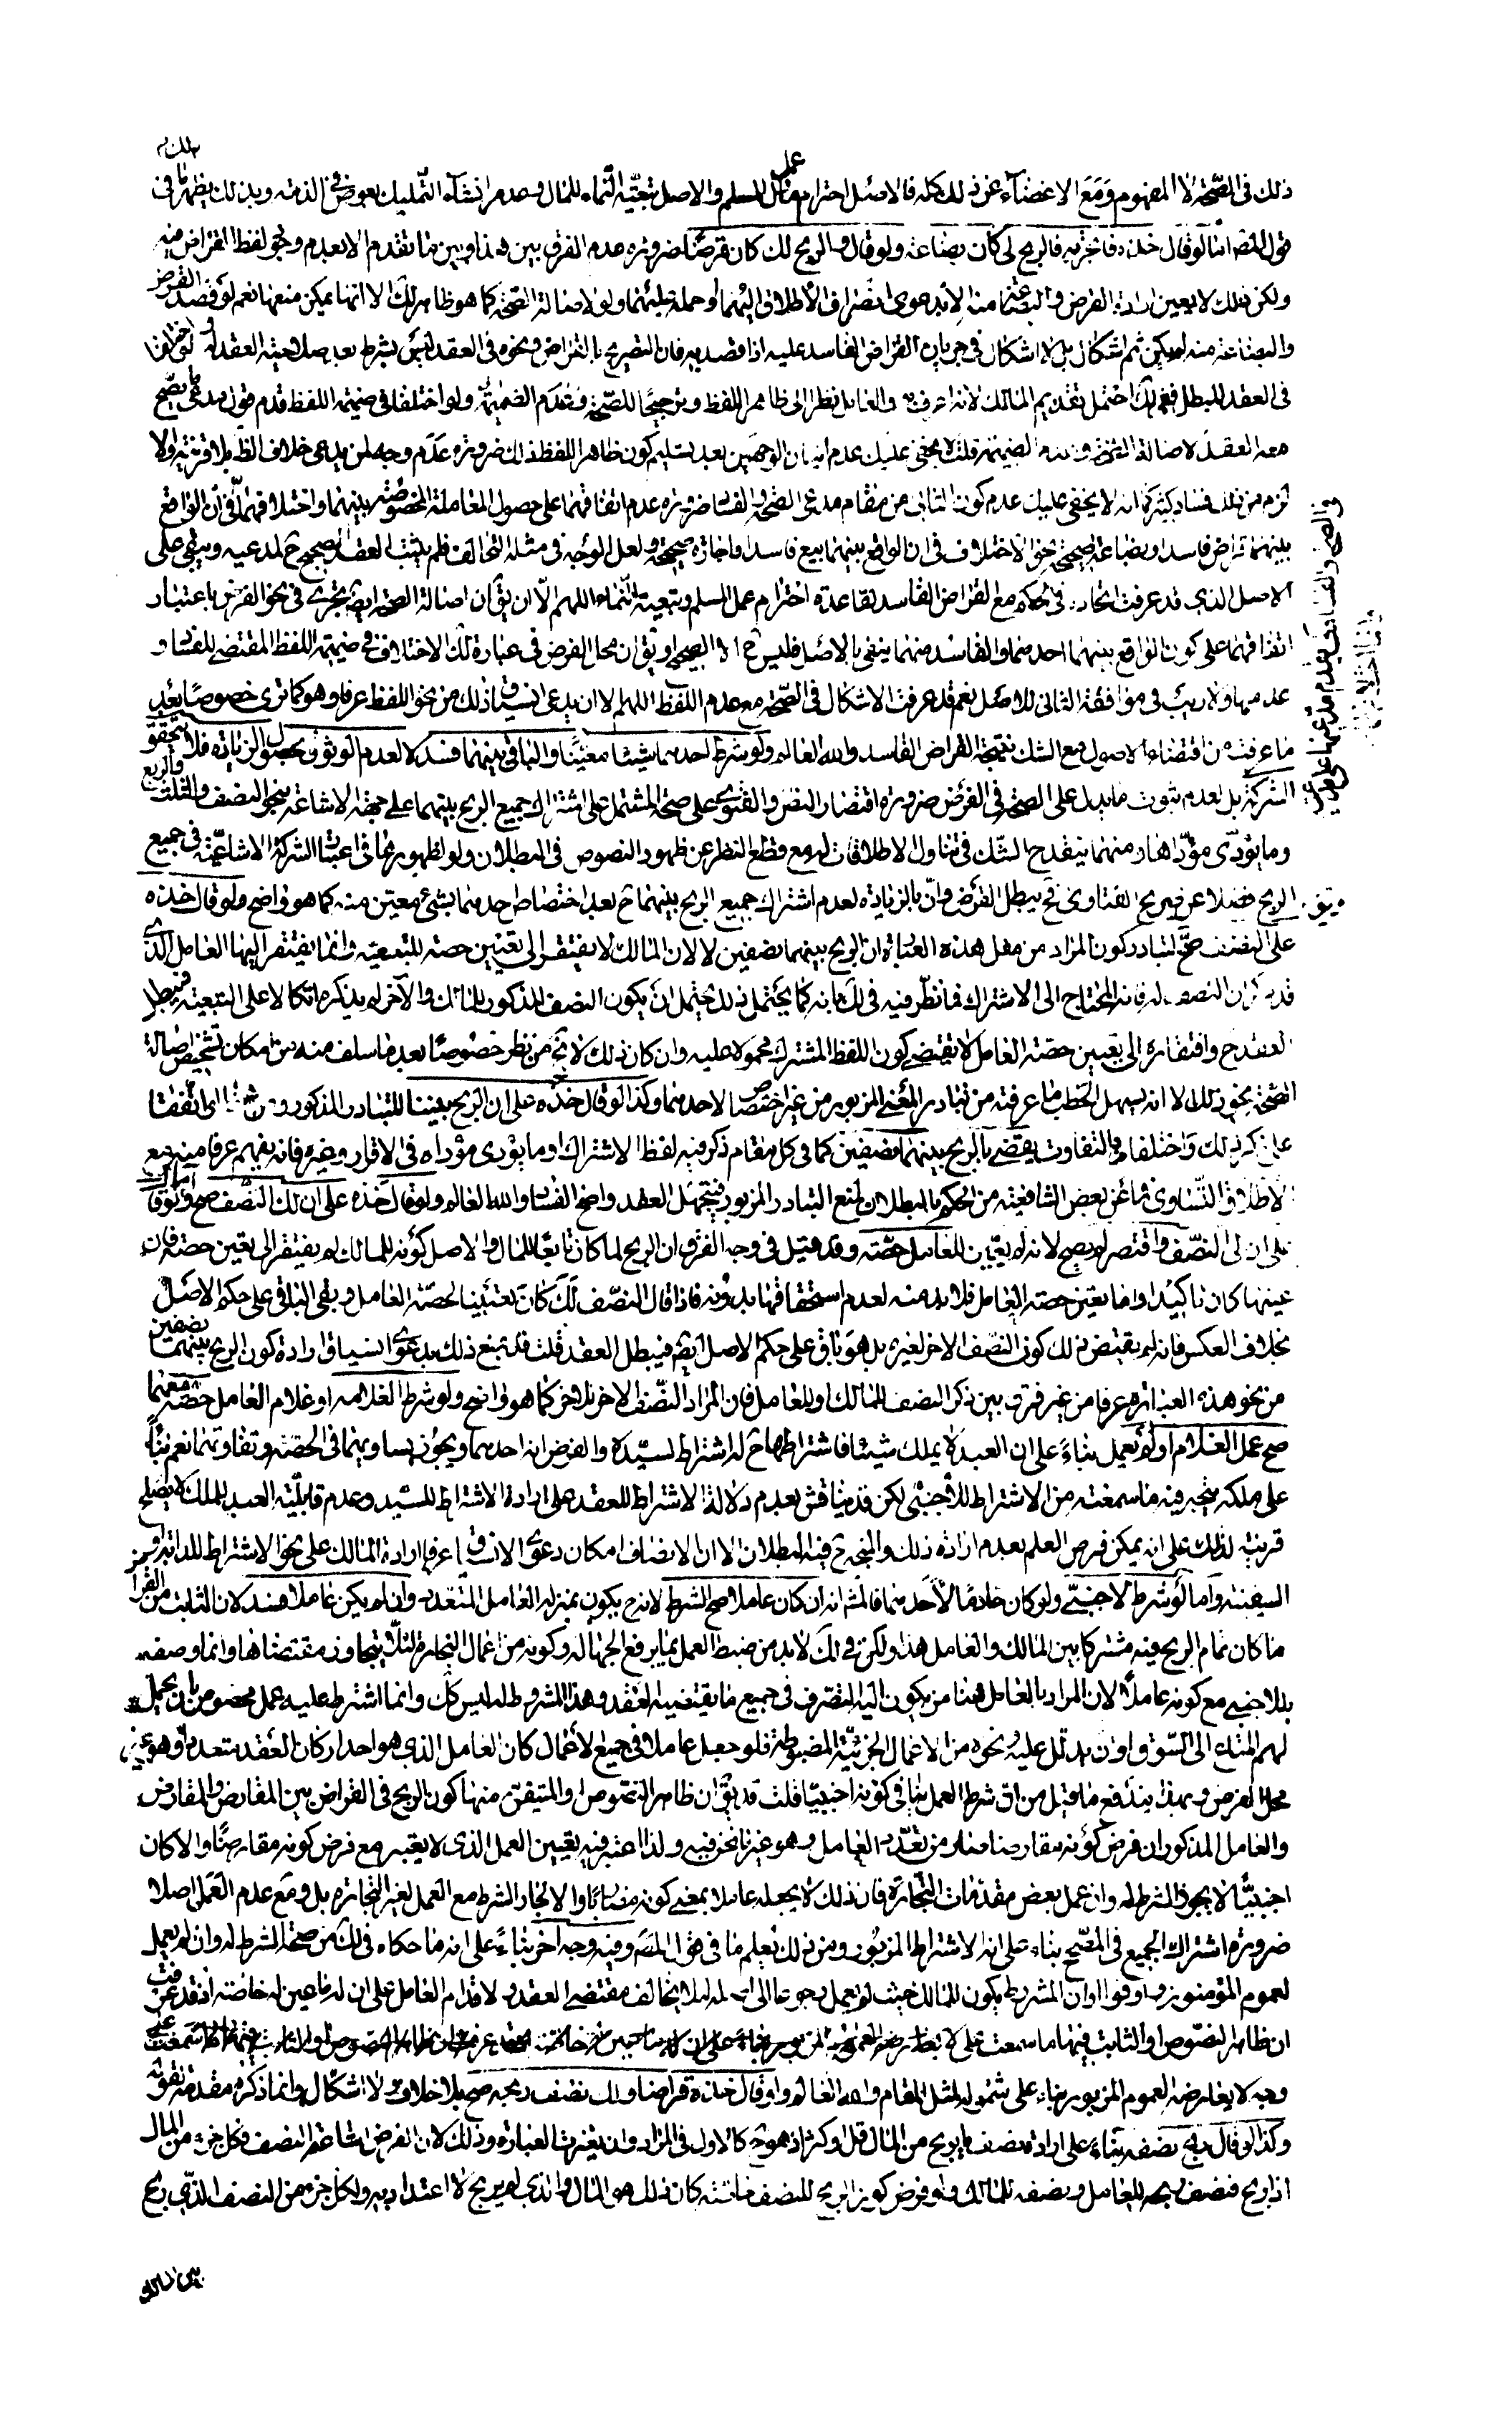 ذلك فى الصّحة الا المفهوم ومع الاغضآء عن ذلك كله فالاصل احترام عمل المسلم والاصل تبعيّة النّماء للمال وعدم انشآء التّمليك بعوض فى الذمة وبذلك يظهر لك ما فى
قول المصنف اما لو قال خذه فاتجر به فالربح لى كان بضاعة ولو قال والربح لك كان قرضًا ضرورة عدم الفرق بين هذا وبين ما تقدم الا بعدم وجود لفظ القراض فيه
ولكن ذلك لا يعين ارادة القرض والبضاعة منه الا بدعوى انصراف الاطلاق اليهما او حمله عليهما ولو لاصالة الصّحة كما هو ظاهر لك الا انهما يمكن منعهما نعم لو قصد القرض
والبضاعة منه لم يكن ثم اشكال بل لا اشكال فى جريان القراض الفاسد عليه اذا قصد به فان التصريح بالقراض ونحوه فى العقد ليس بشرط بعد صلاحية العقد له ولو اختلفا
فى العقد المبطل احتمل تقديم المالك لانه اعرف والعامل نظرا الى ظاهر اللفظ وترجيحًا للصّحة وتقدم الضميمة ولو اختلفا فى ضميمة اللفظ قدم قول مدعى ما يصّح
معه العقد لاصالة الصحة وعدم الضميمة قلت لا يخفى عليك عدم الوجهين بعد تسليم كون ظاهر اللفظ ذلك ضرورة عدم وجه لمن يدعى خلاف الظ بلا قرينة والا
لزم من ذلك فساد كثير كما انه لا يخفى عليك عدم كون الثانى من مقام مدعى الصّحة والفساد ضرورة عدم اتفاقهما على حصول المعاملة المخصوصة بينهما واختلافهما فى ان الواقع
بينهما قراض فاسد او بضاعة صحيحة نحو الاختلاف فى ان الواقع بينهما بيع فاسد او اجارة صحيحة ولعل الوجه فى مثله التحالف فلم يثبت العقد الصحيح ح لمدعيه ويبقى على
الاصل الذى قد عرفت اتحاده فى الحكم مع القراض الفاسد لقاعدة احترام عمل المسلم وتبعية النّماء اللهم الّا ان يقال ان اصالة الصحة ايضا تجرى فى نحو الفرض باعتبار
اتفاقهما على كون الواقع بينهما احدهما والفاسد منهما ينفى بالاصل فليس ح الا الصحيح او يقال ان محل الفرض فى عبارة لك الاختلاف فى ضميمة اللفظ المقتضى للفساد و
عدمها ولا ريب فى موافقة الثانى للاصل نعم قد عرفت الاشكال فى الصّحة مع عدم اللفظ اللهم الا ان يدعى انسياق ذلك من نحو اللفظ عرفا وهو كما ترى خصوصًا بعد
ما عرفت من اقتضاء الاصول مع الشك نتيجة القراض الفاسد والله العالم ولو شرط احدهما شيئا معيّنًا والباقى بينهما فسد لا لعدم الوثوق بحصول الزيادة فلا يتحقق
الشركة بل لعدم ثبوت ما يدل على الصحة فى الفرض ضرورة اقتصار النص والفتوى على صحة المشتمل على اشتراك جميع الربح بينهما على جهة الاشاعة بنحو النصف والثلث والربع
وما يؤدّى مؤدّاها منهما فيقدح الشك فى تناول الاطلاقات له مع قطع النظر عن ظهور النصوص فى البطلان ولو لظهورها فى اعتبار الشركة الاشاعية فى جميع
الربح فضلا عن صريح الفتاوى فح يبطل الفرض وان وثق بالزيادة لعدم اشتراك جميع الربح بينهما ح بعد اختصاص احدهما بشئ معين منه كما هو واضح ولو قال خذه
على النصف صحّ لتبادر كون المراد من مثل هذه العبارة ان الربح بينهما نصفين لا لان المالك لا يفتقر الى تعيين حصته للتبعية وانما يفتقر اليها العامل الذى
النصف له فانه المحتاج الى الاشتراك فما نظّر فيه فى لك بانه كما يحتمل ذلك يحتمل ان يكون النصف المذكور للمالك والآخر لم يذكره اتكالا على التبعية فيبطل
العقد ح وافتقاره الى تعيين حصة العامل لا يقتضى كون اللفظ المشترك محمولا عليه وان كان ذلك لا يخ من نظر خصوصًا بعد ما سلف منه من امكان تشخيص اصالة
الصّحة بنحو ذلك الا انه يسهل الخطب ما عرفته من تبادر المعنى المزبور من غير اختصاص لاحدهما وكذا لو قال خذه على ان الربح بيننا للتبادر المذكور
على ذكر ذلك واختلفا فى التفاوت يقضى بالربح بينهما نصفين كما فى كل مقام ذكر فيه لفظ الاشتراك وما يؤدى مؤداه فى الاقرار وغيره فانه يفهم عرفا منه مع
الاطلاق التّساوى فما عن بعض الشافعية من الحكم بالبطلان لمنع التبادر المزبور فيتجهل العقد واضح الفساد والله العالم ولو قال خذه على ان لك النصف صح ولو قال
على ان لى النّصف واقتصر لم يصح لانه لم يعيّن للعامل حصّته وقد قيل فى وجه الفرق ان الربح لما كان تابعًا للمال والاصل كونه للمالك لم يفتقر الى تعيين حصته فان
عينها كان تاكيدا واما تعين حصة العامل فلا بد منه لعدم استحقاقها بدونه فاذا قال النصّف لك كان تعيينا لحصّة العامل وبقى الباقى على حكم الاصل
بخلاف العكس فانه لم يقتض ذلك كون النصّف الاخر لغيره بل هو باق على حكم الاصل ايضا فيبطل العقد قلت قد يمنع ذلك بدعوى انسياق ارادة كون الربح بينهما نصفين
من نحو هذه العبارة عرفا من غير فرق بين ذكر النصف للمالك او للعامل فان المراد النصّف الاخر للاخر كما هو واضح ولو شرط لغلامه او غلام العامل حصّة معهما
صح عمل الغلام او لم يعمل بناءً على ان العبد لا يملك شيئا فاشتراطها ح له اشتراط لسيّده والفرض انه احدهما ويجوز تساويهما فى الحصّة وتفاوتهما نعم بناءً
على ملكه يتجه فيه ما سمعته من الاشتراط للاجنبى لكن قد يناقش بعدم دلالة الاشتراط للعقد على ارادة الاشتراط للسّيد وعدم قابليّة العبد للملك لا يصلح
قرينة لذلك على انه يمكن فرض العلم بعدم ارادة ذلك والمتجه ح فيه البطلان الا ان الانصاف امكان دعوى الانسياق عرفا ارادة المالك على نحو الاشتراط للدابة ومن
السفينة واما لو شرط لاجنبىّ ولو كان خادمًا لاحدهما فالمشهور انه ان كان عاملا صح الشرط لانه ح يكون بمنزلة العامل المتعدد وان لم يكن عاملا فسد لان الثابت من القراض
ما كان تمام الربح فيه مشتركا بين المالك والعامل هذا ولكن فى لك لابد من ضبط العمل بما يرفع الجهالة وكونه من اعمال التجارة لئلّا يتجاوز مقتضاها وانما وصفه
بالاجنبى مع كونه عاملًا لان المراد بالعامل هنا من يكون اليه التصرّف فى جميع ما يقتضيه العقد وهذا المشروط له ليس كك وانما اشترط عليه عمل مخصوص بان يحمل
لهم المتاع الى السّوق او ان يدلّل عليه ونحوه من الاعمال الجزئيّة المضبوطة فلو جعل عاملا فى جميع الأعمال كان العامل الذى هو احد اركان العقد متعددا وهو غير
محل الفرض وبهذا يندفع ما قيل من ان شرط العمل ينافى كونه اجنبيّا قلت قد يقال ان ظاهر النصوص او المتيقن منها كون الربح فى القراض بين المقارض والمقارض
والعامل المذكور ان فرض كونه مقارضا من تعدّد العامل وهو غير ما نحن فيه ولذا اعتبر فيه تعيين العمل الذى لا يعتبر مع فرض كونه مقارضًا والا كان
اجنبيًّا لا يجوز الشرط له وان عمل بعض مقدمات التّجارة فان ذلك لا يجعله عاملا بمعنى كونه مضاربًا والا لجاز الشرط مع العمل لغير التجارة بل ومع عدم العمل اصلا
ضرورة اشتراك الجميع فى المصّحح بناء على انه الاشتراط المزبور ومن ذلك يعلم ما فى قول المصنف وفيه وجه اخر بناءً على انه ما حكاه فى لك من صحة الشرط له وان لم يعمل
لعموم المؤمنون واوفوا او ان المشروط يكون للمالك حيث لم يعمل رجوعا الى اصله لئلا يخالف مقتضى العقد ولاقدام العامل على ان له ما عين له خاصة اذ قد عرفت
ان ظاهر النصّوص او الثابت فيها ما سمعت على
وجه لا يعارضه العموم المزبور بناء على شموله لمثل المقام والله العالم ولو قال خذه قراضا ولك نصف ربحه صح بلا خلاف ولا اشكال وانما ذكره مقدمة لقوله
وكذا لو قال ربح نصفه بناء على ارادة نصف ما يربح من المال قل او كثر اذ هو ح كالاول فى المراد وان تغيرت العبارة وذلك لان الفرض اشاعة النصف فكل جزء من المال
اذا ربح فنصف ربحه للعامل ونصفه للمالك ولو فرض كون الربح للنصف خاصّة كان ذلك هو المال والذى لم يربح لا اعتداد به ولكل جزء من النصف الذى ربح